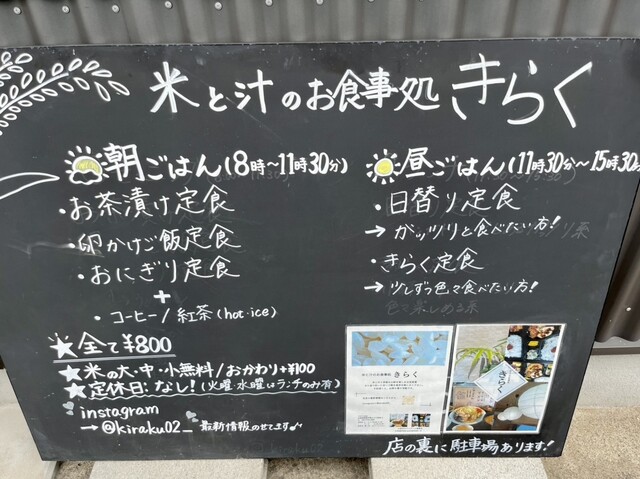 米と汁のお食事処 きらく
朝ごはん(8時～11時30分)
・お茶漬け定食
・卵かけご飯定食
・おにぎり定食
+
・コーヒー/紅茶(hot・ice)
★全て¥800
★米の大・中・小無料/おかわり+¥100
★定休日:なし!(火曜水曜はランチのみ有)
instagram
→@kiraku02_ 最新情報のせてます
昼ごはん(11時30分～15時30分
・日替り定食
→ガッツリと食べたい方!
・きらく定食
→少しずつ色々食べたい方!
きらく
きらく
店の裏に駐車場あります!